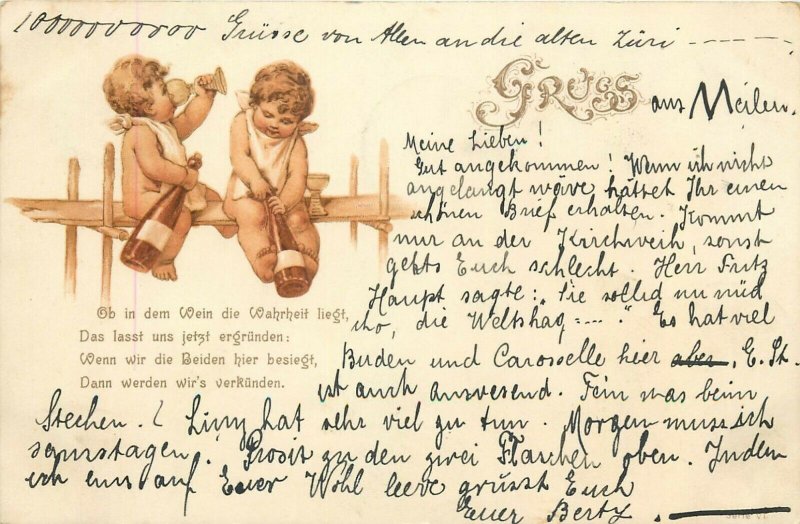 10000000000 Grüsse von Allen an die alten Züri - - - - -
GRUSS aus Meilen.
Meine Lieben!
Gut angekommen! Wenn ich nicht
angelangt wäre hättet Ihr einen
schönen Brief erhalten. Kommt
nur an der Kirchweih, sonst
gehts Euch schlecht. Herr Fritz
Haupt sagte: "Sie sollid nu nüd
cho, die Weltshag =...." Es hat viel
Buden und Carosselle hier aber, E. St.
ist auch anwesend. Fein was beim
Stechen. ( Liny hat sehr viel zu tun. Morgen muss ich
. Prosit zu den zwei Flaschen oben. Indem
ich eins auf Euer Wohl leere grüsst Euch
Euer Bertz.
Ob in dem Wein die Wahrheit liegt,
Das lasst uns jetzt ergründen:
Wenn wir die Beiden hier besiegt,
Dann werden wir's verkünden.
Serie VI